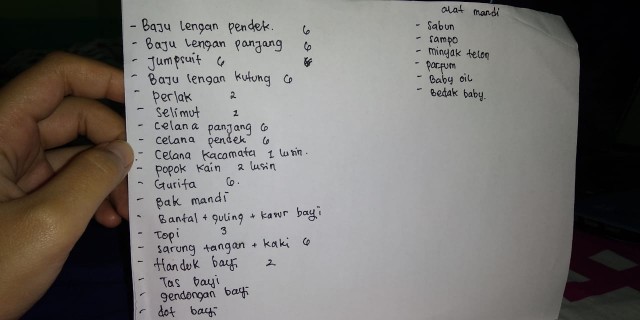 - Baju lengan pendek. 6
- Baju lengan panjang 6
- Jumpsuit 6
- Baju lengan kutung 6
- Perlak 2
- Selimut 2
- Celana panjang 6
- Celana pendek 6
- Celana kacamata 1 lusin.
- popok kain 2 lusin
- Gurita 6.
- Bak mandi
- Bantal + guling + kasur bayi
- Topi 3
- sarung tangan + kaki 6
- Handuk bayi 2
- Tas bayi
- gendongan bayi
- dot bayi
alat mandi
- Sabun
- sampo
- minyak telon
- parfum
- Baby oil
- Bedak baby.